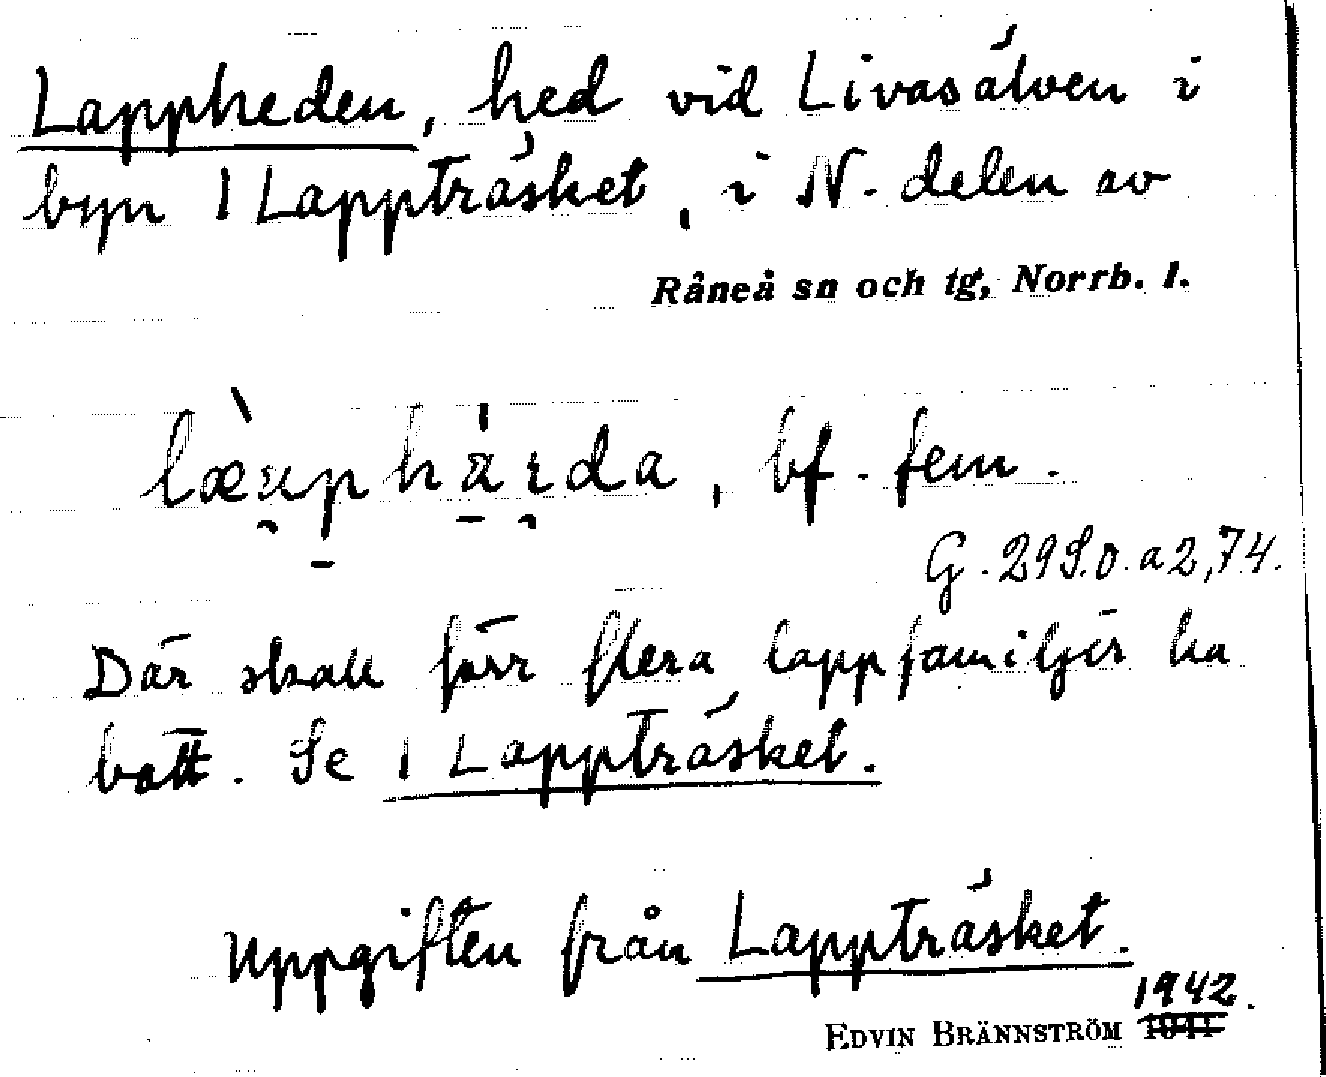 Lappheden, hed vid Livasälven i
byn 1 Lappträsket, i N. delen av
Råneå sn och tg, Norrb. l.
bf. fem.
G. 29 S.O. a 2,74.
Där skall förr flera lappfamiljer ha
bott. Se 1 Lappträsket.
Uppgiften från Lappträsket.
1942.
EDVIN BRÄNNSTRÖM 1941